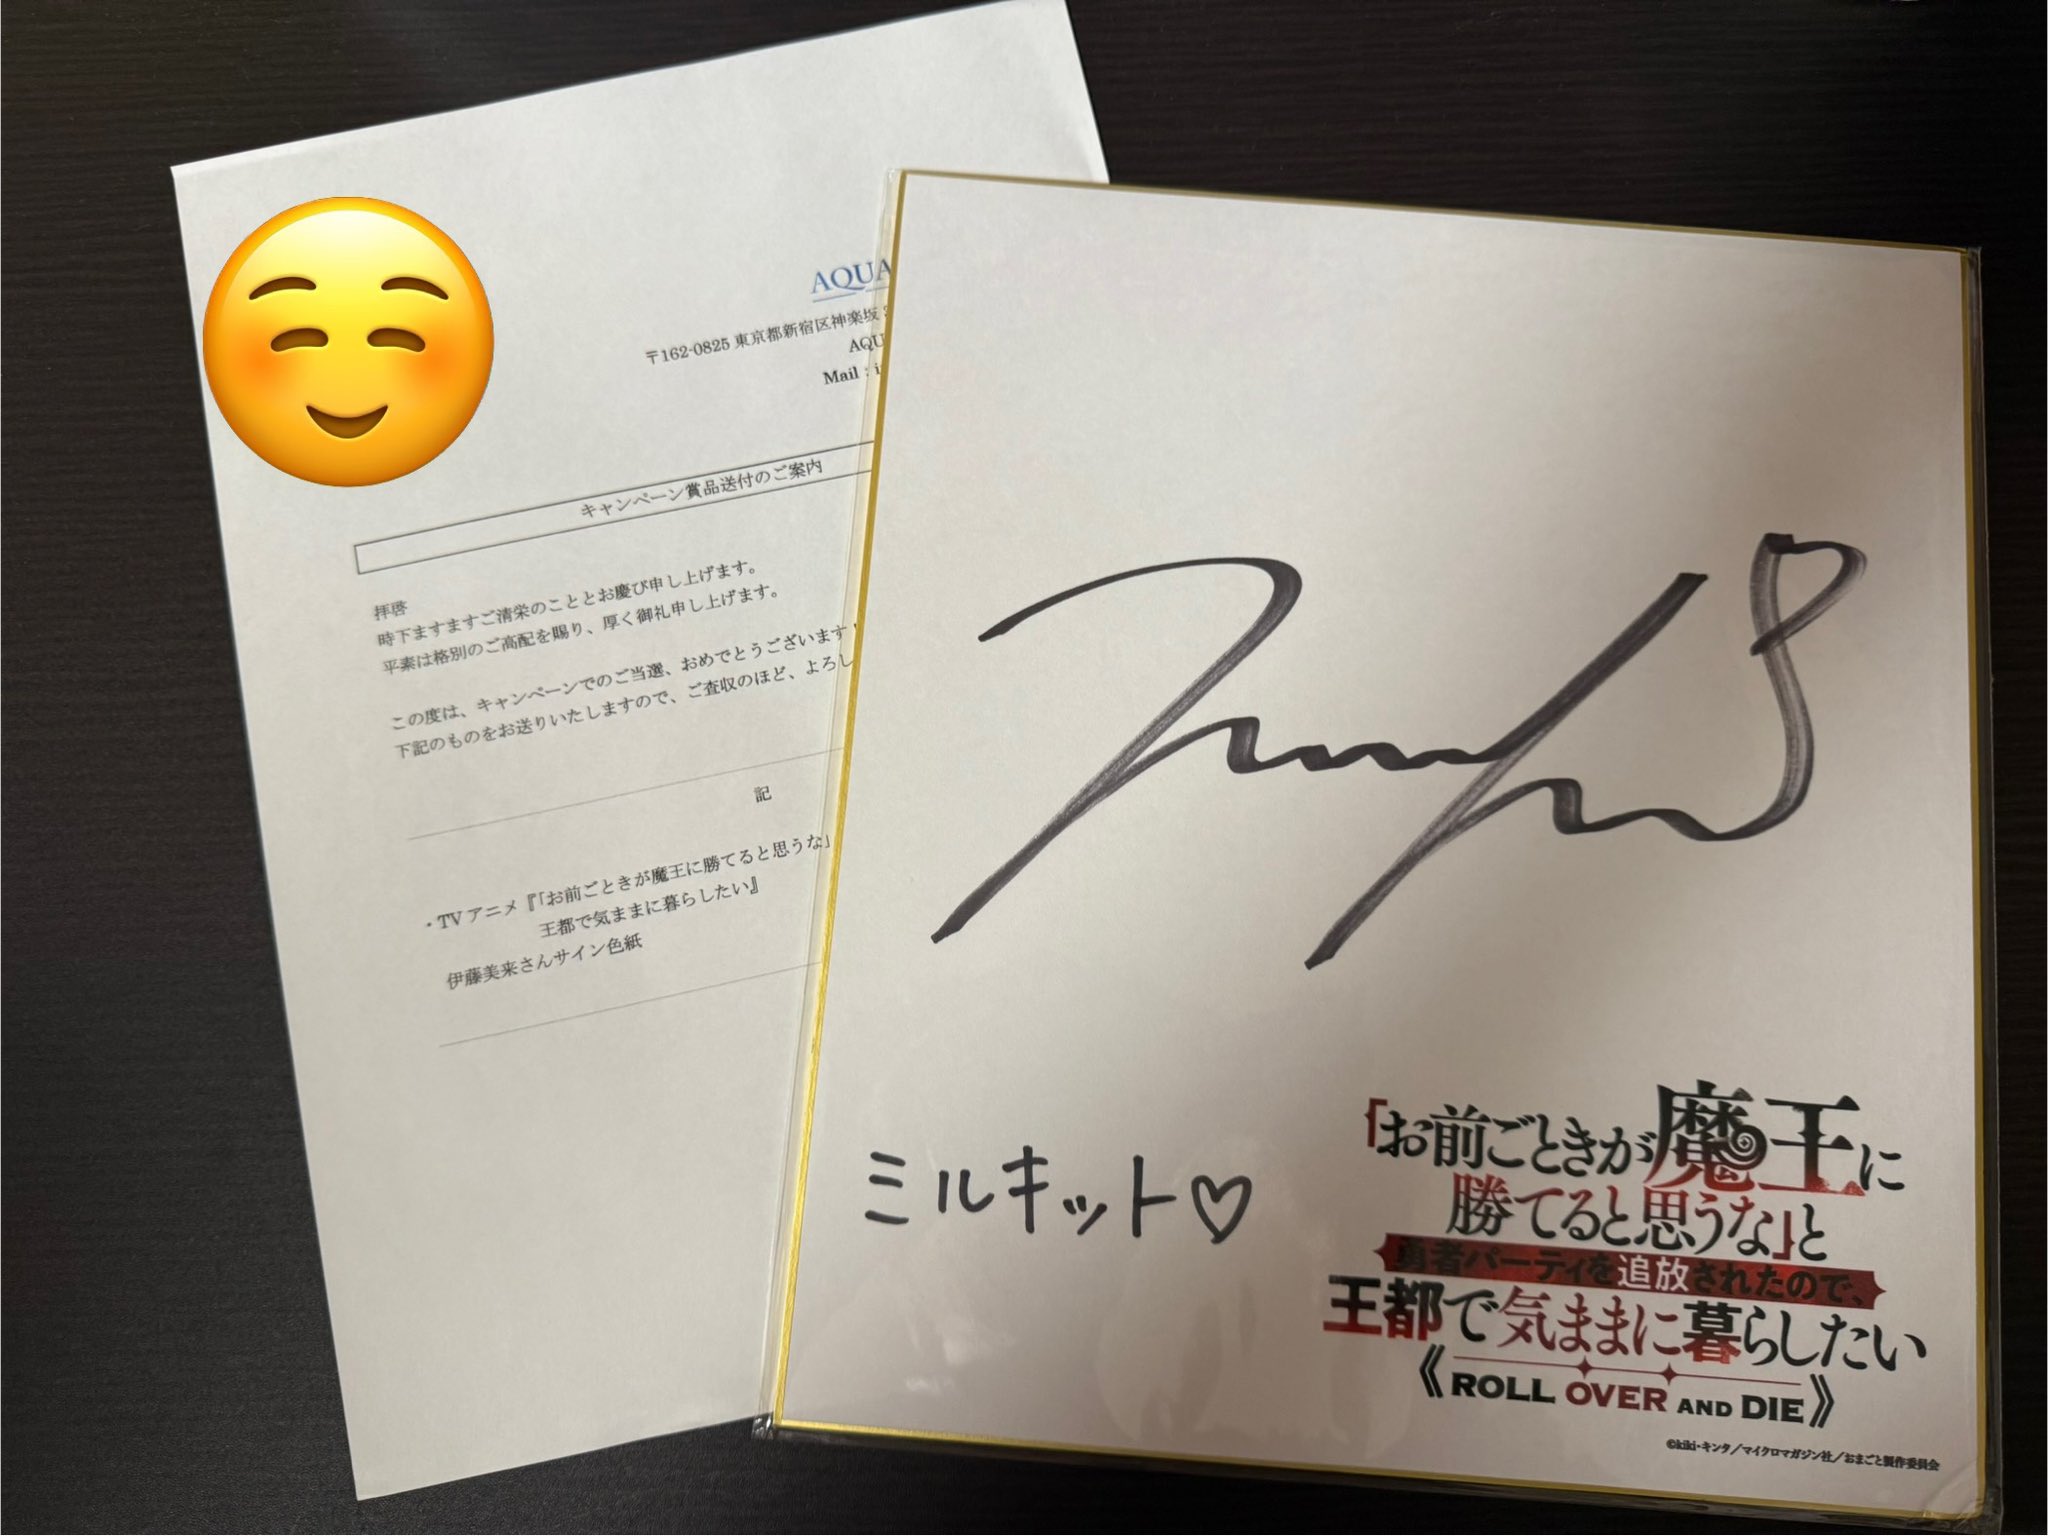 AQUA
〒162-0825 東京都新宿区神楽坂
AQU
Mail :
キャンペーン賞品送付のご案内
拝啓
時下ますますご清栄のこととお慶び申し上げます。
平素は格別のご高配を賜り、厚く御礼申し上げます。
この度は、キャンペーンでのご当選、おめでとうございます
下記のものをお送りいたしますので、ご査収のほど、よろし
記
・TVアニメ『「お前ごときが魔王に勝てると思うな」
王都で気ままに暮らしたい』
伊藤美来さんサイン色紙
ミルキット♡
「お前ごときが魔王に
勝てると思うな」と
勇者パーティを追放されたので、
王都で気ままに暮らしたい
《ROLL OVER AND DIE》
©kiki・キンタ／マイクロマガジン社／おまごと製作委員会